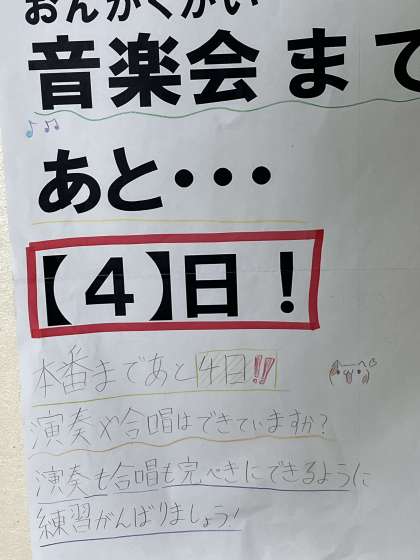 おんがくかい
音楽会まで
あと・・・
【４】日！
本番まであと4日!!
演奏や合唱はできていますか?
演奏も合唱も完ぺきにできるように
練習がんばりましょう!